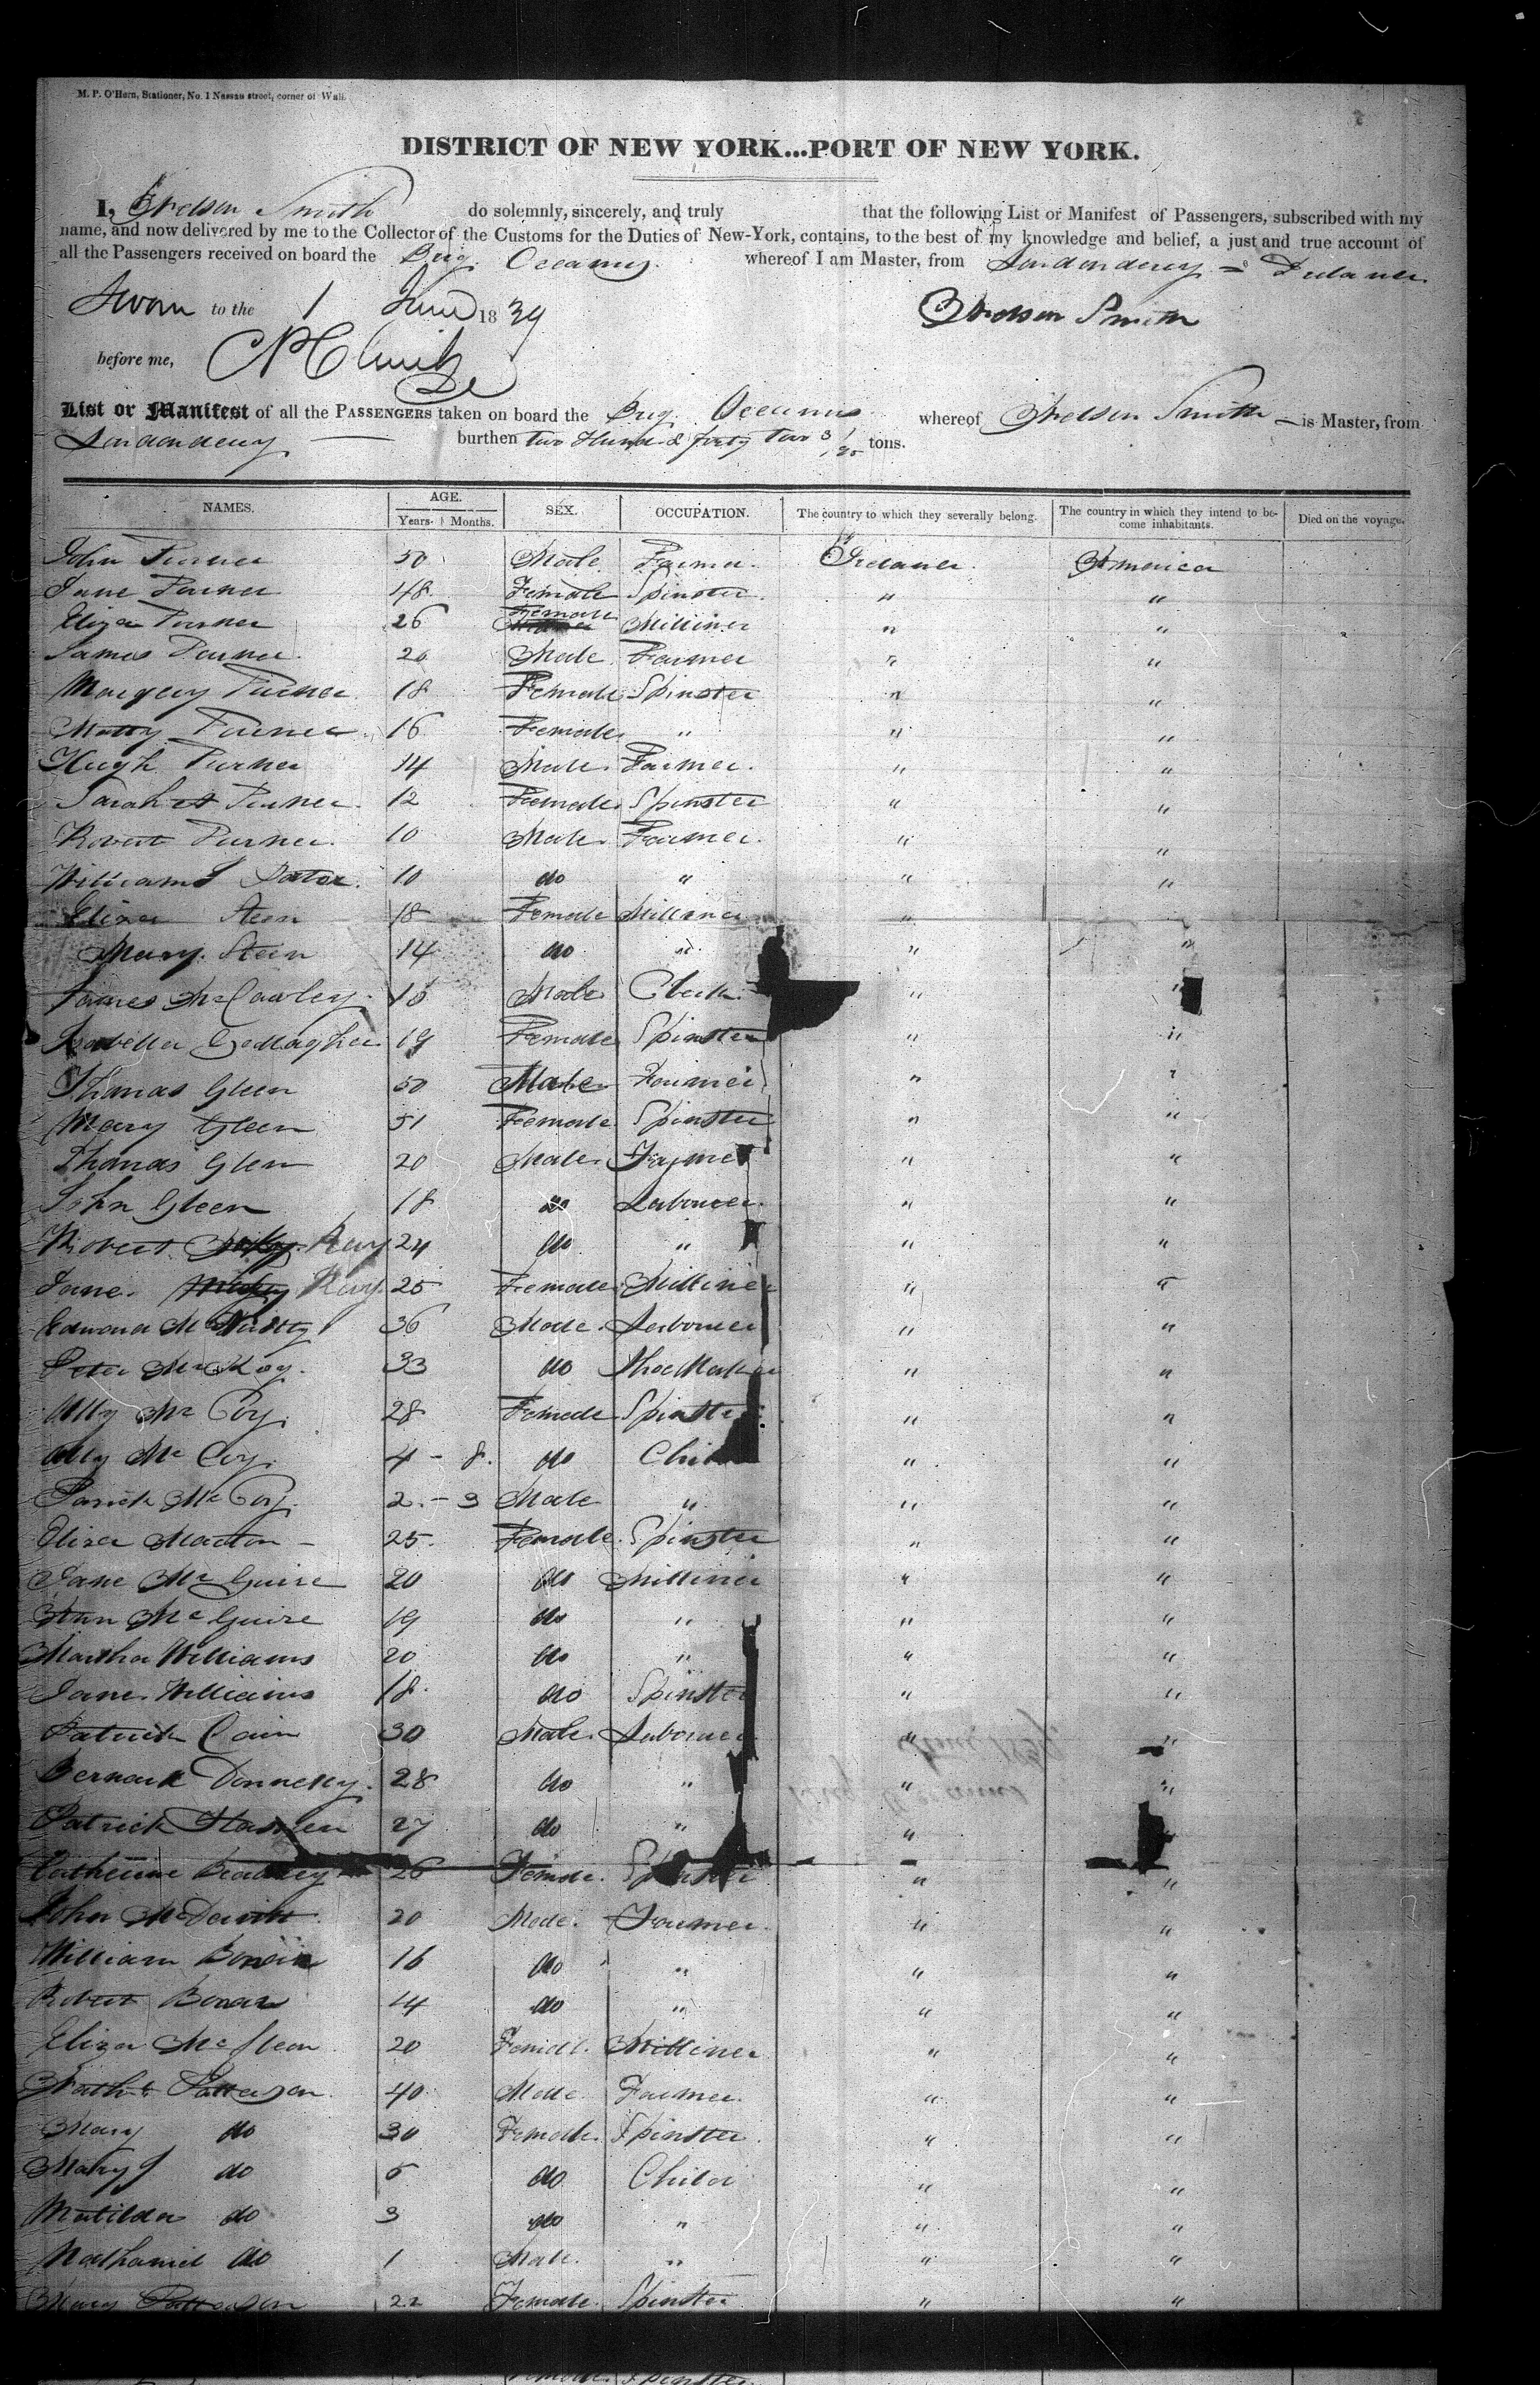 M. P. O'Hern, Stationer, No. 1 Nassau street, corner of Wall.
DISTRICT OF NEW YORK...PORT OF NEW YORK.
I, Smith do solemnly, sincerely, and truly that the following List or Manifest of Passengers, subscribed with my
name, and now delivered by me to the Collector of the Customs for the Duties of New-York, contains, to the best of my knowledge and belief, a just and true account of
all the Passengers received on board the Brig Oceanus whereof I am Master, from Londonderry = Ireland
Sworn to the 1 June 1839 Smith
before me,
List or Manifest of all the PASSENGERS taken on board the Brig Oceanus whereof Smith is Master, from
Londonderry burthen two Hund & forty two 31/95 tons.
NAMES. AGE. Years. Months. SEX. OCCUPATION. The country to which they severally belong. The country in which they intend to become inhabitants. Died on the voyage.
John Turner 50 Male Farmer Ireland America
Jane Turner 48 Female Spinster " "
Eliza Turner 26 Female Milliner " "
James Turner 20 Male Farmer " "
Margery Turner 18 Female Spinster " "
Matty Turner 16 Female " " "
Hugh Turner 14 Male Farmer " "
Sarah A Turner 12 Female Spinster " "
Robert Turner 10 Male Farmer " "
William 10 do " " "
Eliza Steen 18 Female Milliner " "
Mary Steen 14 do " " "
James McCawley Male Clerk " "
Isabella Gallagher 19 Female Spinster " "
Thomas Gleen 50 Male Farmer " "
Mary Gleen 51 Female Spinster " "
Thomas Glenn 20 Male Farmer " "
John Gleen 18 do Labourer " "
Robert Kay 24 do " " "
Jane Kay 25 Female Milliner " "
Edward 36 Male Labourer " "
Peter McKoy 33 do Shoe Maker " "
Ally McCoy 28 Female Spinster " "
Ally McCoy 4 - 8 do Child " "
Patrick McCoy 2 - 3 Male " " "
Eliza Macton 25 Female Spinster " "
Jane McGuire 20 do Milliner " "
Ann McGuire 19 do " " "
Martha Williams 20 do " " "
Jane Williams 18 do Spinster " "
Patrick Cain 30 Male Labourer " "
Bernard Donnelly 28 do " " "
Patrick 27 do " " "
Catherine Bradley 26 Female Spinster " "
John McDevitt 20 Male Farmer " "
William 16 do " " "
Robert 14 do " " "
Eliza McClean 20 Female Milliner " "
Patterson 40 Male Farmer " "
Mary do 30 Female Spinster " "
Mary J do 5 do Child " "
Matilda do 3 do " " "
Nathaniel do 1 Male " " "
Mary Patterson 22 Female Spinster " "
Female Spinster